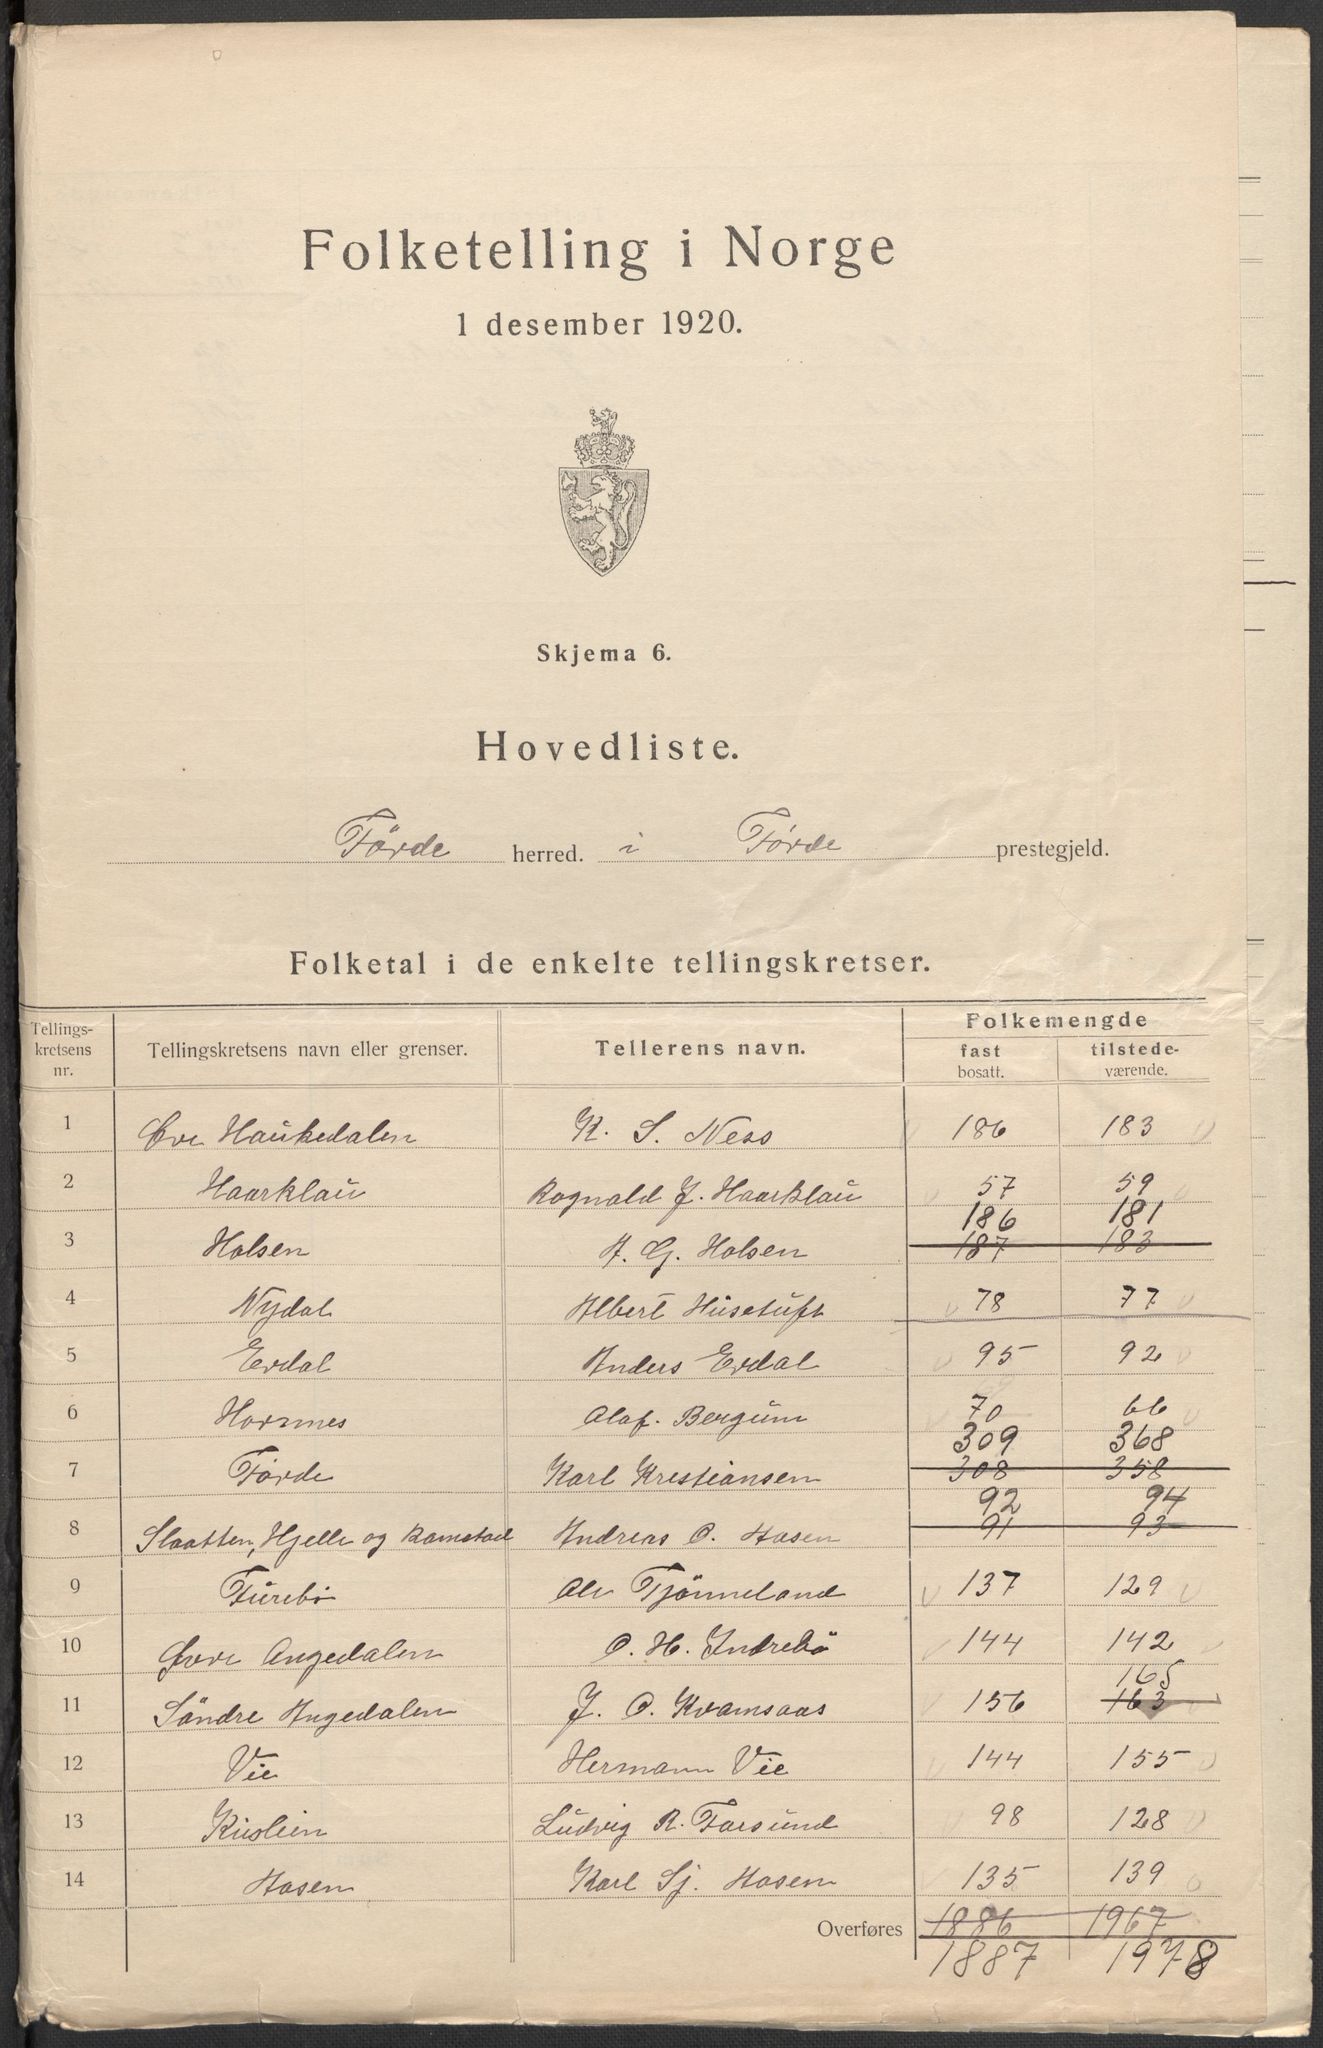 Folketelling i Norge
1 desember 1920.
Skjema 6.
Hovedliste.
Förde herred. i Førde prestegjeld.
Folketal i de enkelte tellingskretser.
Tellings-kretsens nr. Tellingskretsens navn eller grenser. Tellerens navn. Folkemengde
fast bosatt. tilstede-værende.
1 Øvre Haukedalen K. S. Ness 186 183
2 Haarklau Rognald J. Haarklau 57 59
186 181
3 Holsen A. G. Holsen 187 183
4 Nydal Albert Husetuft 78 77
5 Erdal Anders Erdal 95 92
6 Hornnes Olaf. Bergum 70 66
309 368
7 Førde Karl Kristiansen 308 358
92 94
8 Slaatten, Hjelle og Ramstad Andreas O. Aasen 91 93
9 Furebö Ole Tjönneland 137 129
10 Øvre Angedalen O. H. Indrebö 144 142
165
11 Söndre Angedalen J. O. Kvamsaas 156 163
12 Vie Hermann Vie 144 155
13 Kuslien Ludvig R. Farsund 98 128
14 Aasen Karl Sj. Aasen 135 139
Overføres 1886 1967
1887 1978